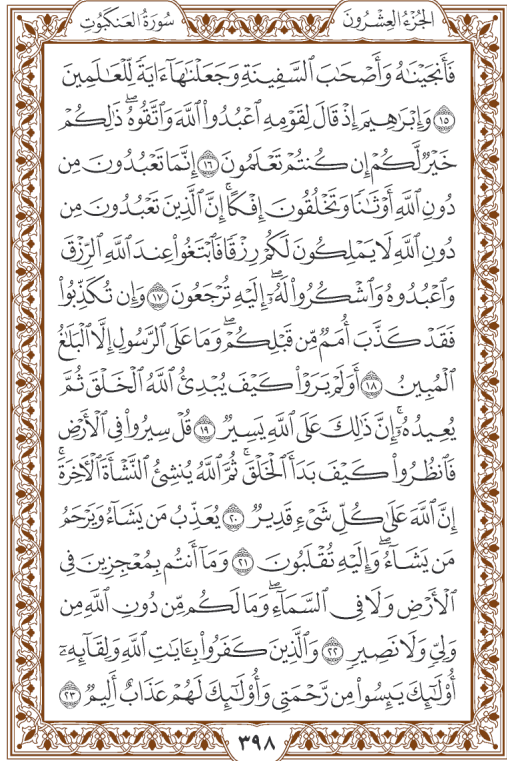 سُورَةُ العَنكَبُوتِ
الجُزْءُ العِشْرُونَ
فَأَنجَيْنَٰهُ وَأَصْحَٰبَ ٱلسَّفِينَةِ وَجَعَلْنَٰهَآ ءَايَةً لِّلْعَٰلَمِينَ
١٥ وَإِبْرَٰهِيمَ إِذْ قَالَ لِقَوْمِهِ ٱعْبُدُوا۟ ٱللَّهَ وَٱتَّقُوهُ ۖ ذَٰلِكُمْ
خَيْرٌ لَّكُمْ إِن كُنتُمْ تَعْلَمُونَ ١٦ إِنَّمَا تَعْبُدُونَ مِن
دُونِ ٱللَّهِ أَوْثَٰنًا وَتَخْلُقُونَ إِفْكًا ۚ إِنَّ ٱلَّذِينَ تَعْبُدُونَ مِن
دُونِ ٱللَّهِ لَا يَمْلِكُونَ لَكُمْ رِزْقًا فَٱبْتَغُوا۟ عِندَ ٱللَّهِ ٱلرِّزْقَ
وَٱعْبُدُوهُ وَٱشْكُرُوا۟ لَهُۥٓ ۖ إِلَيْهِ تُرْجَعُونَ ١٧ وَإِن تُكَذِّبُوا۟
فَقَدْ كَذَّبَ أُمَمٌ مِّن قَبْلِكُمْ ۖ وَمَا عَلَى ٱلرَّسُولِ إِلَّا ٱلْبَلَٰغُ
ٱلْمُبِينُ ١٨ أَوَلَمْ يَرَوْا۟ كَيْفَ يُبْدِئُ ٱللَّهُ ٱلْخَلْقَ ثُمَّ
يُعِيدُهُۥٓ ۚ إِنَّ ذَٰلِكَ عَلَى ٱللَّهِ يَسِيرٌ ١٩ قُلْ سِيرُوا۟ فِى ٱلْأَرْضِ
فَٱنظُرُوا۟ كَيْفَ بَدَأَ ٱلْخَلْقَ ۚ ثُمَّ ٱللَّهُ يُنشِئُ ٱلنَّشْأَةَ ٱلْءَاخِرَةَ ۚ
إِنَّ ٱللَّهَ عَلَىٰ كُلِّ شَىْءٍ قَدِيرٌ ٢٠ يُعَذِّبُ مَن يَشَآءُ وَيَرْحَمُ
مَن يَشَآءُ ۖ وَإِلَيْهِ تُقْلَبُونَ ٢١ وَمَآ أَنتُم بِمُعْجِزِينَ فِى
ٱلْأَرْضِ وَلَا فِى ٱلسَّمَآءِ ۖ وَمَا لَكُم مِّن دُونِ ٱللَّهِ مِن
وَلِىٍّ وَلَا نَصِيرٍ ٢٢ وَٱلَّذِينَ كَفَرُوا۟ بِـَٔايَٰتِ ٱللَّهِ وَلِقَآئِهِۦٓ
أُو۟لَٰٓئِكَ يَئِسُوا۟ مِن رَّحْمَتِى وَأُو۟لَٰٓئِكَ لَهُمْ عَذَابٌ أَلِيمٌ ٢٣
٣٩٨